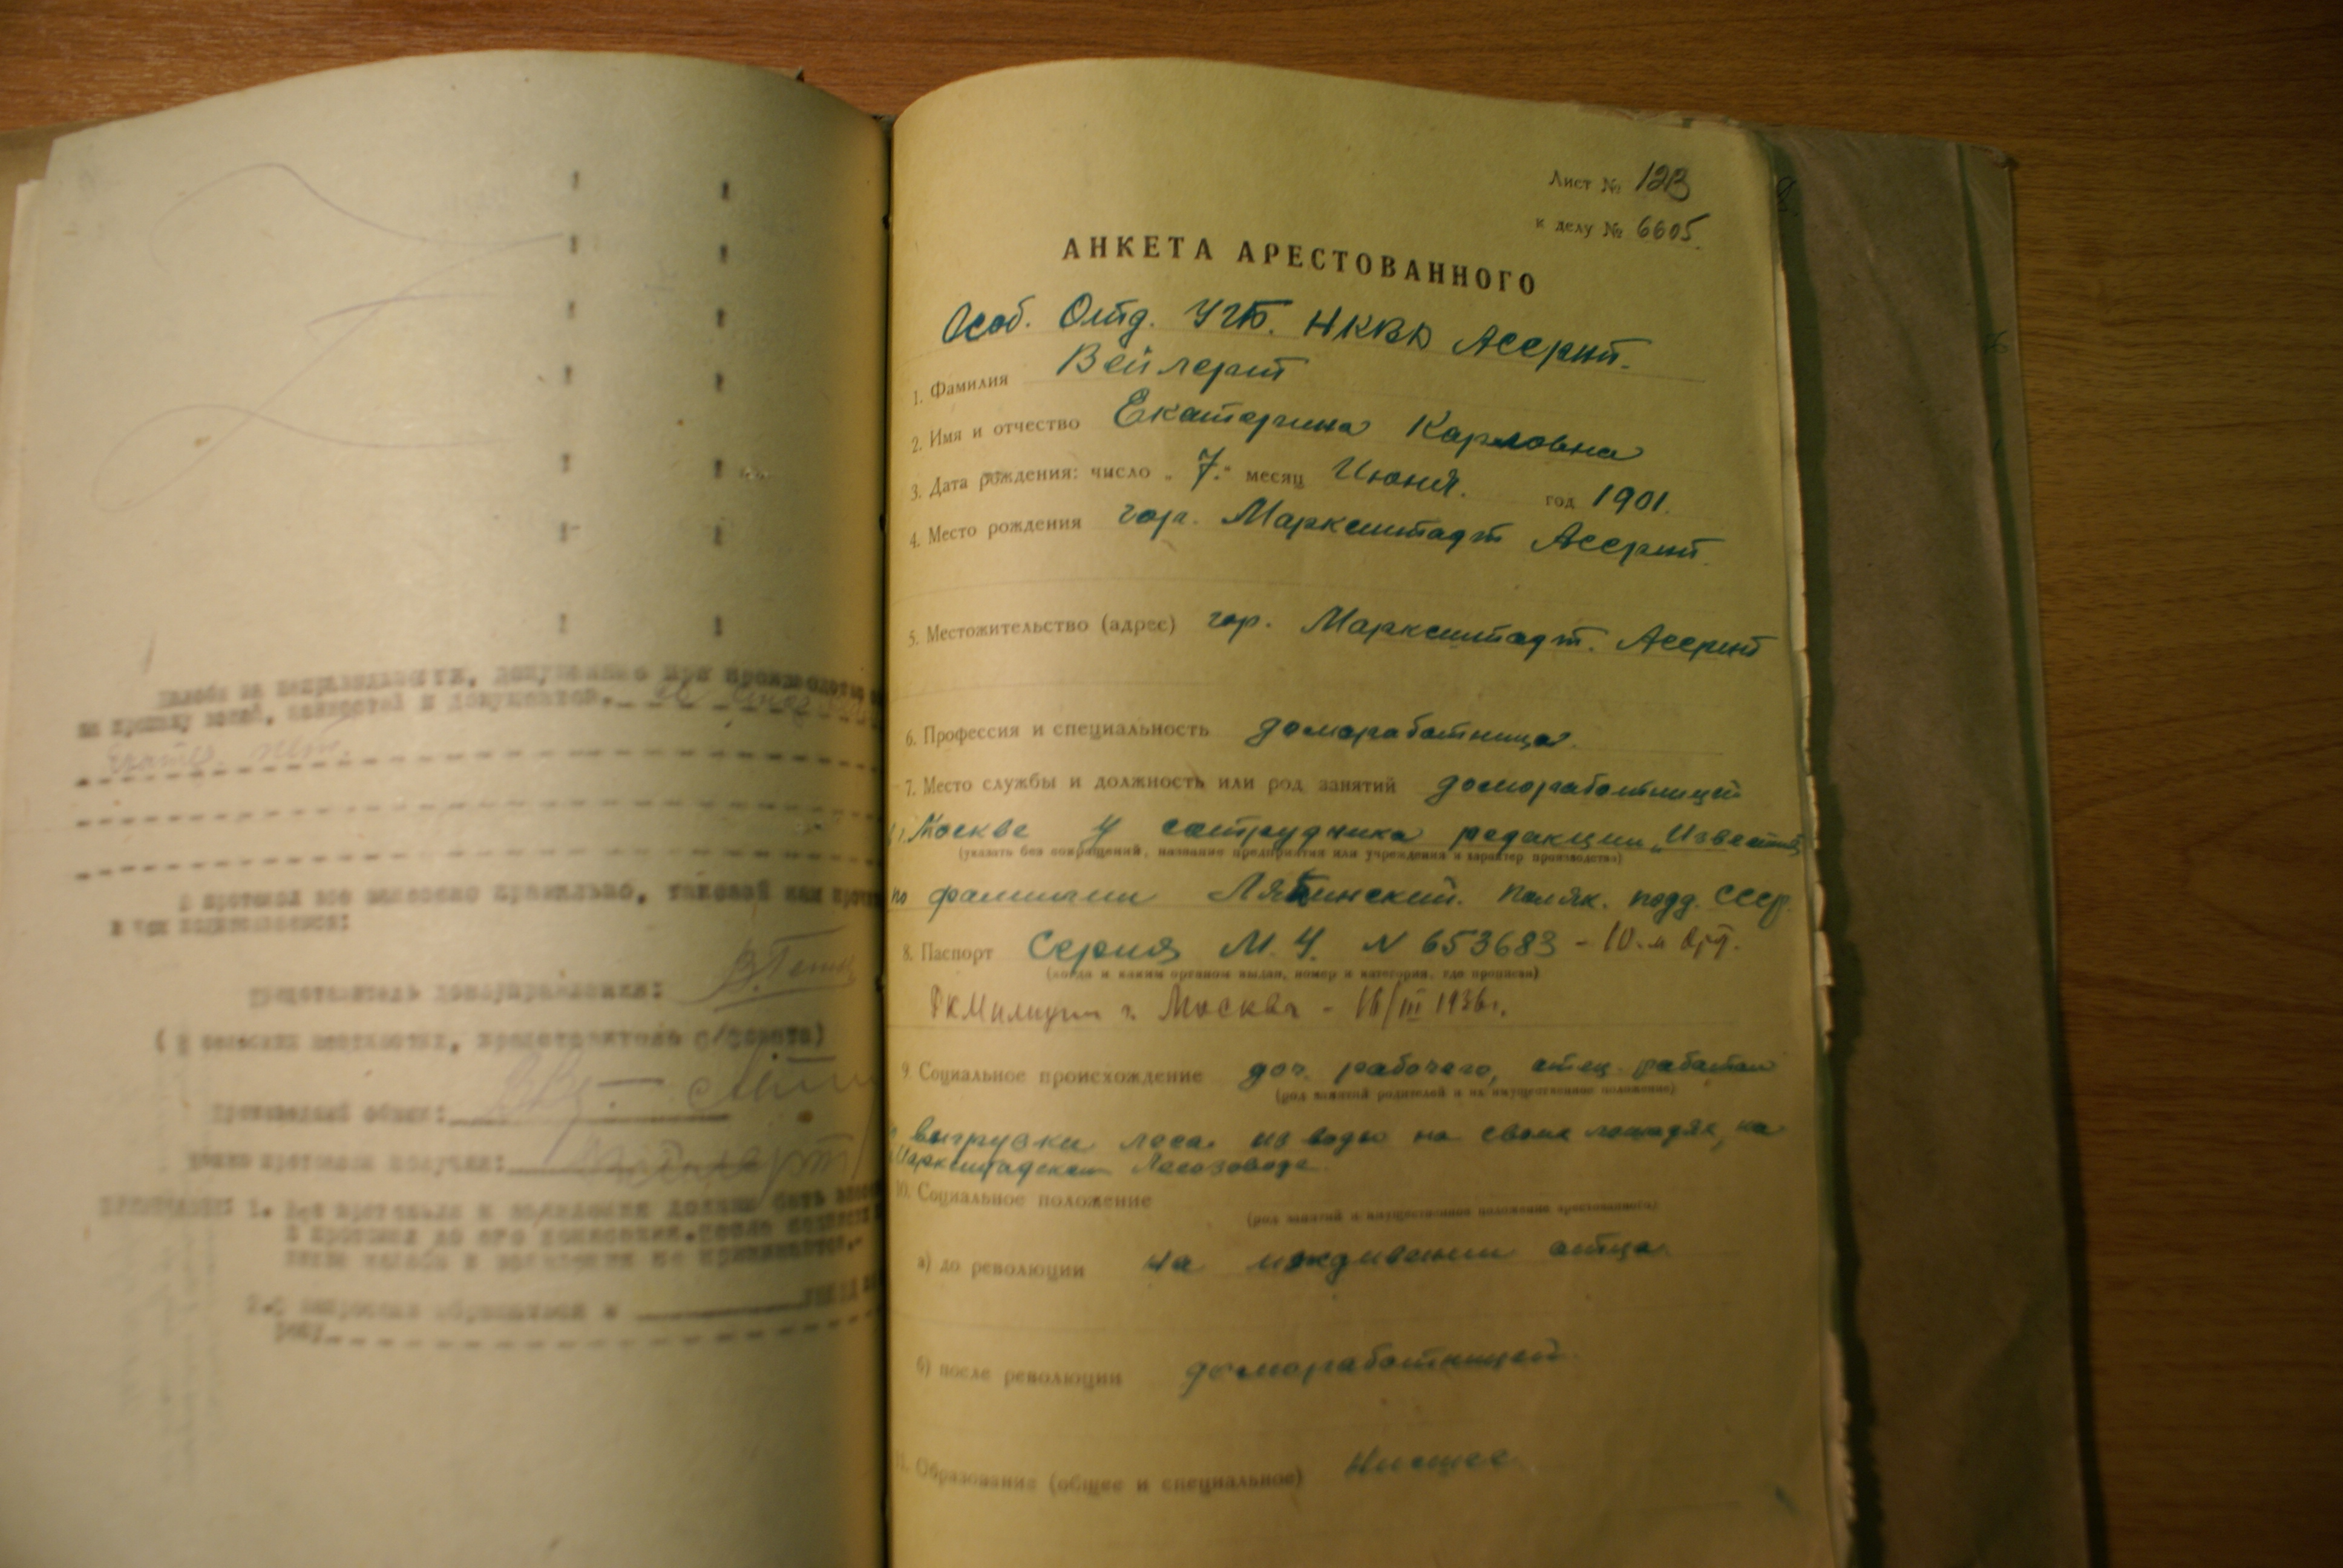 Жалобы на неправильности, допущенные при производстве
на пропажу вещей, ценностей и документов.
нет.
В протокол все занесено правильно, таковой нам
в чем подписываемся:
Представитель домоуправления:
( в сельских местностях, представителя с/совета)
Производивший обыск:
Копию протокола получил:
ПРИМЕЧАНИЕ: 1. Все претензии и заявления должны быть
в протокол до его подписания. После
никакие жалобы и заявления не принимаются.-
2. С запросами обращаться в
Лист № 123
к делу № 6605.
АНКЕТА АРЕСТОВАННОГО
Особ. Отд. УГБ. НКВД АССРНП.
1. Фамилия Вейлерт
2. Имя и отчество Екатерина Карловна
3. Дата рождения: число „ 7." месяц Июня. год 1901.
4. Место рождения гор. Марксштадт АССРНП.
5. Местожительство (адрес) гор. Марксштадт. АССРНП
6. Профессия и специальность домработница.
7. Место службы и должность или род занятий домработницей
Москве у сотрудника редакции „Известий
(указать без сокращений, название предприятия или учреждения и характер производства)
по фамилии поляк. подд. СССР.
8. Паспорт Серия М. Ч. N 653683 - 10-м
(когда и каким органом выдан, номер и категория, где прописан)
РКМилиции г. Москва - 16/III 1936г.
9. Социальное происхождение доч. рабочего, отец работал
(род занятий родителей и их имущественное положение)
выгрузки леса из воды на своих лошадях, на
Марксштадском Лесозаводе.
10. Социальное положение
(род занятий и имущественное положение арестованного)
а) до революции на иждивении отца.
б) после революции домработницей.
11. Образование (общее и специальное) Низшее